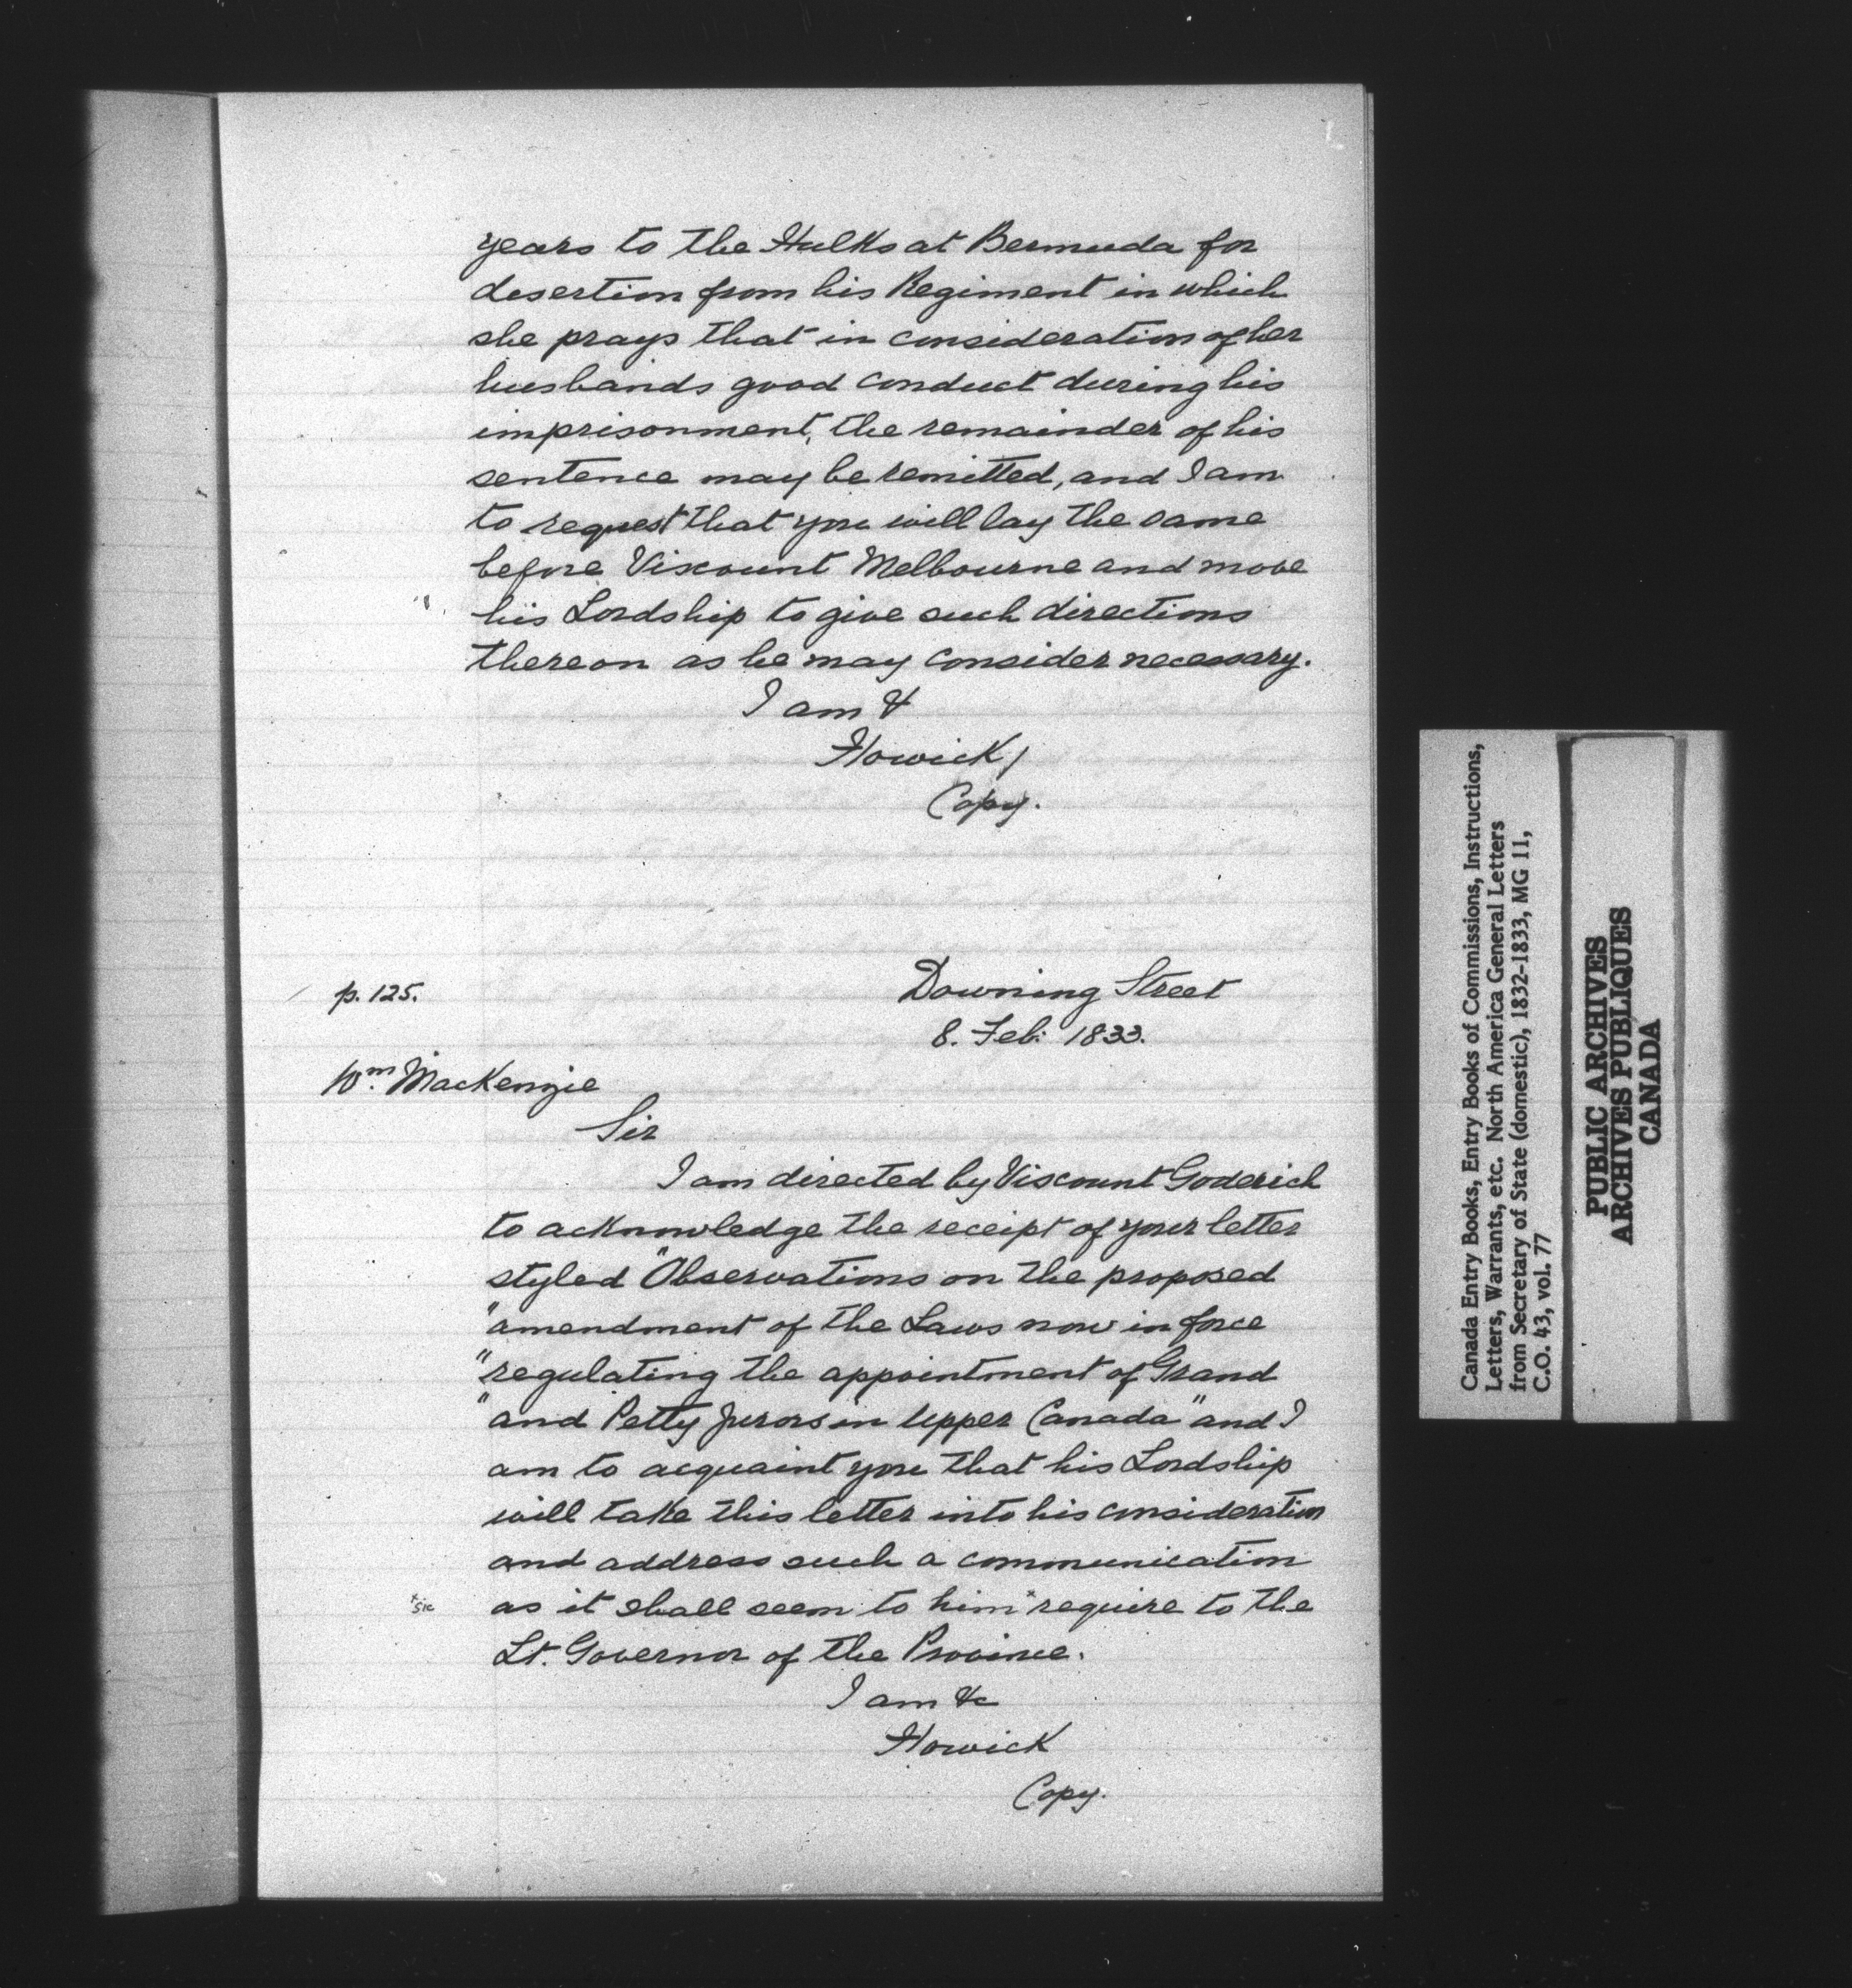 years to the Hulks at Bermuda for
desertion from his Regiment in which
she prays that in consideration of her
husbands good conduct during his
imprisonment, the remainder of his
sentence may be remitted, and I am
to request that you will lay the same
before Viscount Melbourne and move
his Lordship to give such directions
thereon as he may consider necessary.
I am &
Howick/
Copy.
p. 125.
Downing Street
8. Feb: 1833.
Wm. MacKenzie
Sir
I am directed by Viscount Goderich
to acknowledge the receipt of your letter
styled "Observations on the proposed
"amendment of the Laws now in force
"regulating the appointment of Grand
"and Petty Jurors in Upper Canada" and I
am to acquaint you that his Lordship
will take this letter into his consideration
and address such a communication
x sic
as it shall seem to him x require to the
Lt. Governor of the Province.
I am &c
Howick
Copy.
Canada Entry Books, Entry Books of Commissions, Instructions,
Letters, Warrants, etc. North America General Letters
from Secretary of State (domestic), 1832-1833, MG 11,
C.O. 43, vol. 77
PUBLIC ARCHIVES
ARCHIVES PUBLIQUES
CANADA